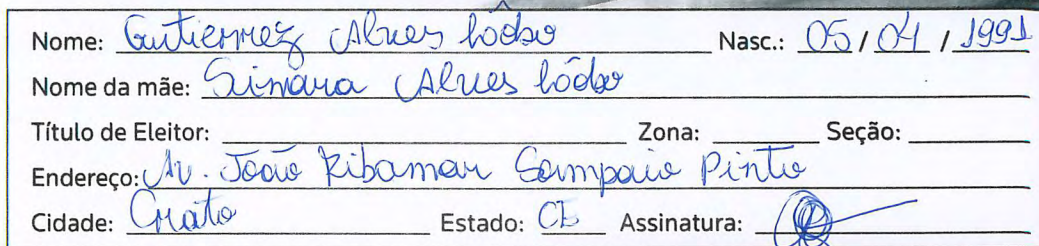 Nome: Gutierrez Alves Lôbo Nasc.: 05/04/1991
Nome da mãe: Simara Alves Lôbo
Título de Eleitor: Zona: Seção:
Endereço: Av. João Ribamar Sampaio Pinto
Cidade: Crato Estado: CE Assinatura: